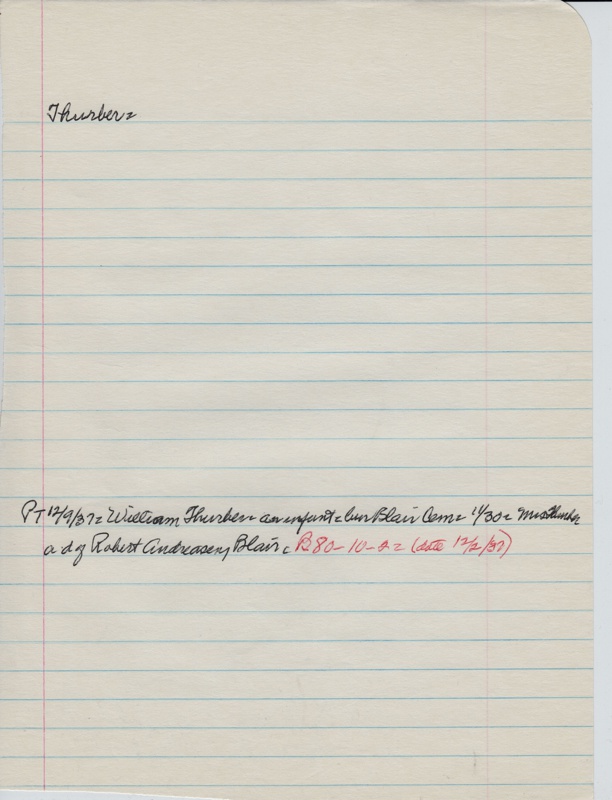 Thurber=
PT 12/9/37= William Thurber= an infant= bur Blair Cem= 11/30= Mrs Thurber
a d of Robert Andreasen, Blair, B80-10-2= (date 12/2/37)